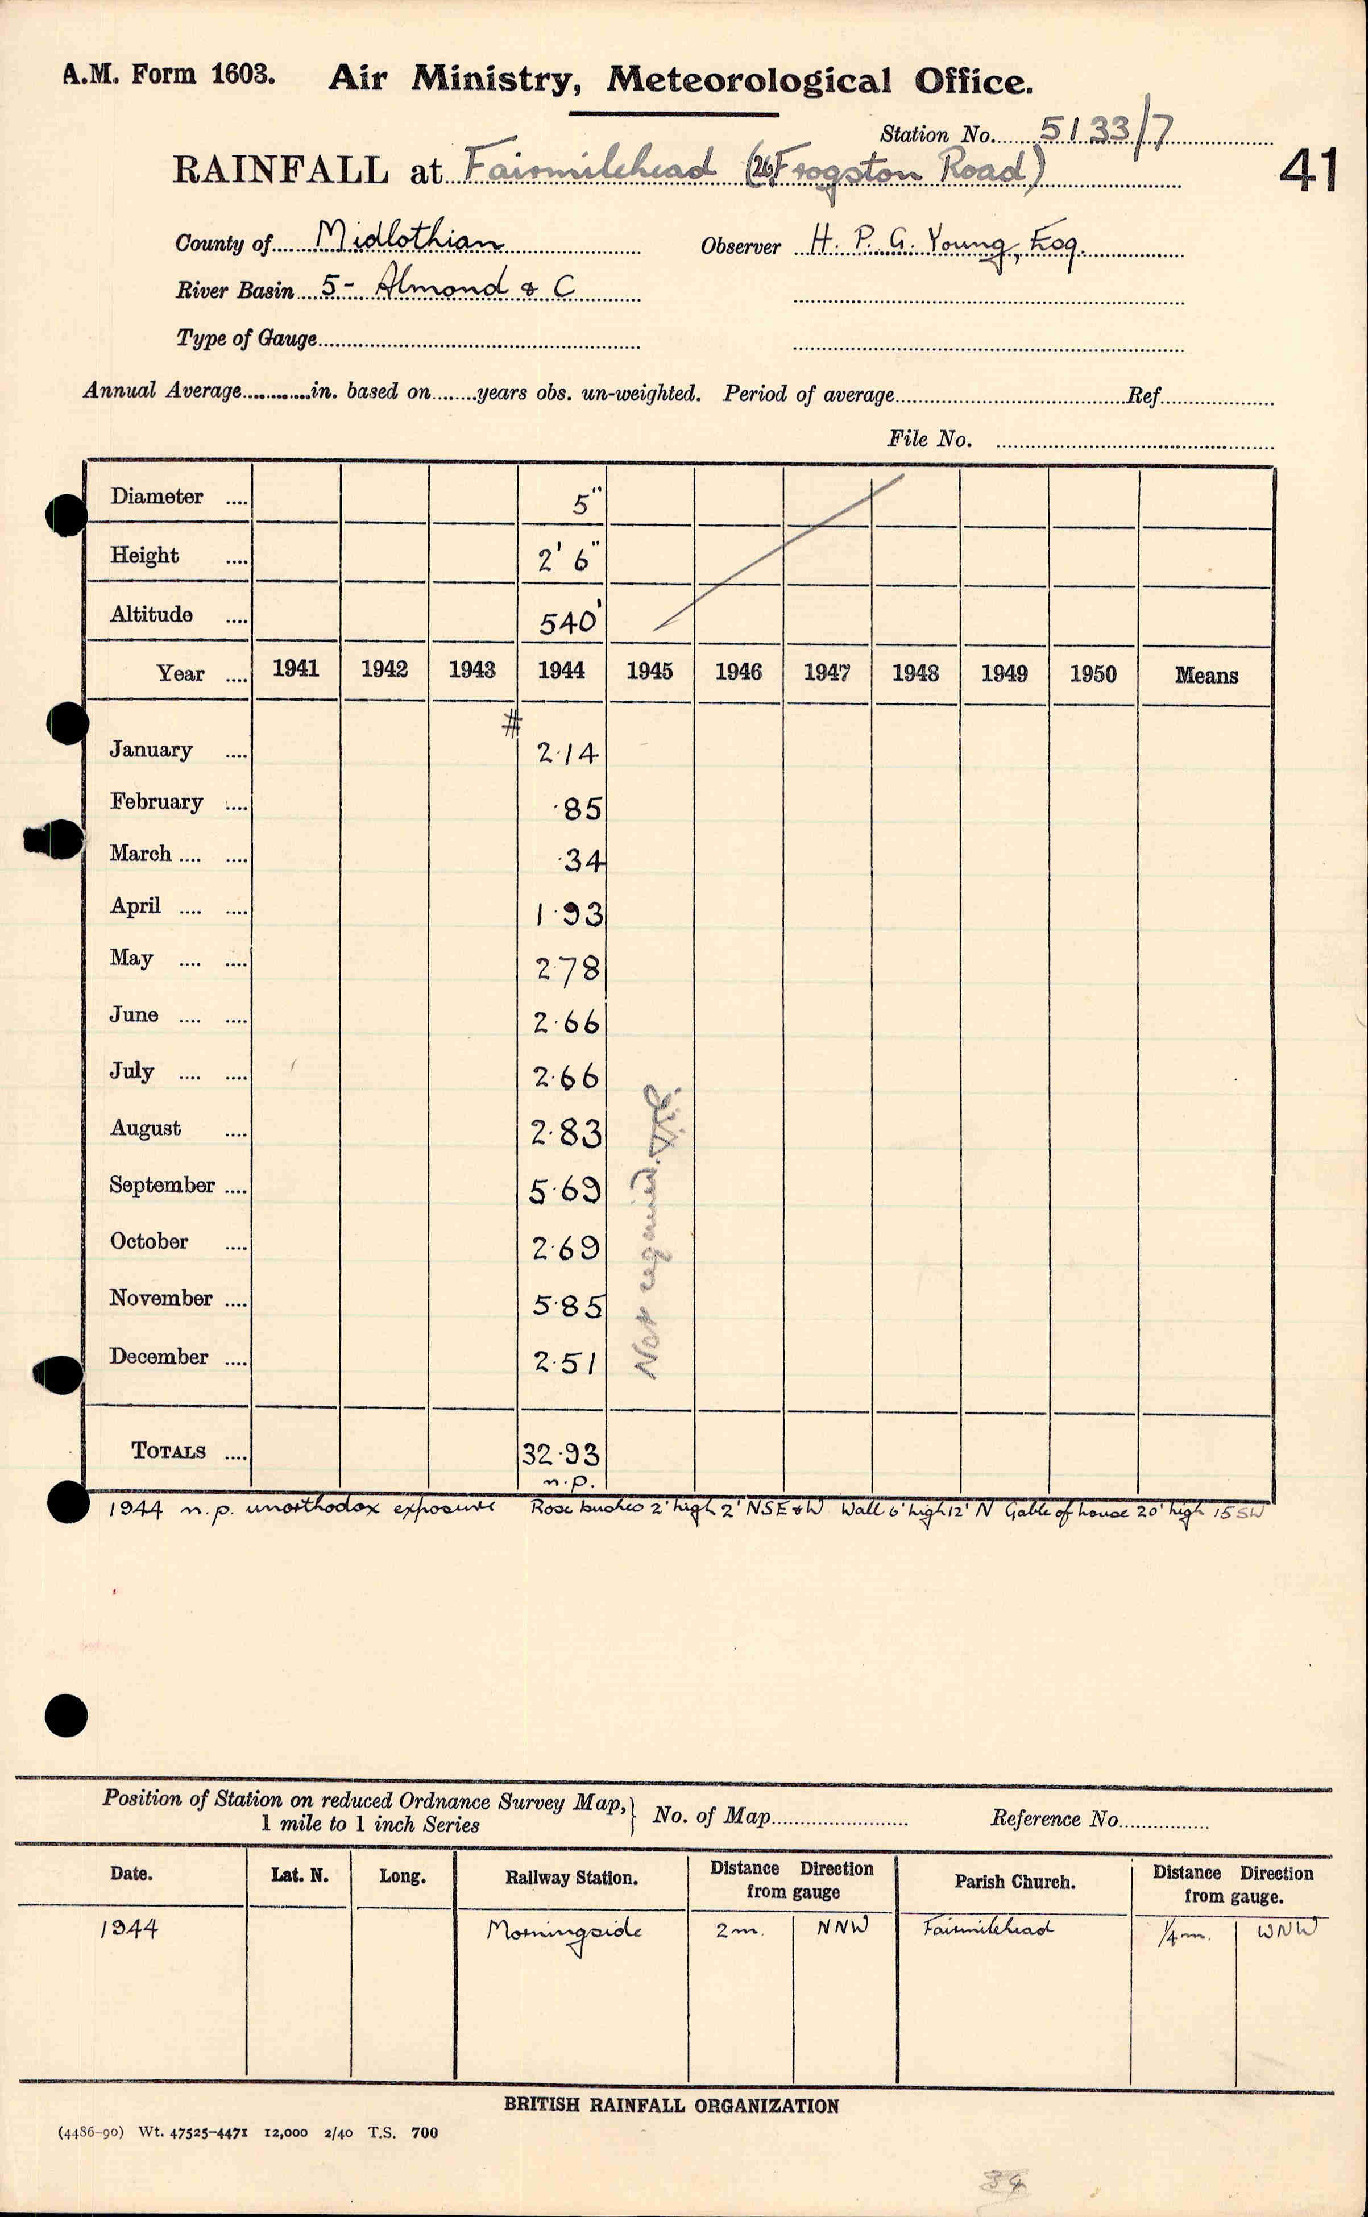 A.M. Form 1603. Air Ministry, Meteorological Office.
Station No. 5133/7
RAINFALL at Fairmilehead (26, Frogston Road)
41
County of Midlothian Observer H. P. G. Young, Esq.
River Basin 5- Almond & C
Type of Gauge
Annual Average in. based on years obs. un-weighted. Period of average Ref
File No.
Diameter .... 5"
Height .... 2' 6"
Altitude .... 540'
Year .... 1941 1942 1943 1944 1945 1946 1947 1948 1949 1950 Means
#
January .... 2.14
February .... .85
March .... .... .34
April .... .... 1.93
May .... .... 2.78
June .... .... 2.66
July .... .... 2.66
August .... 2.83
September .... 5.69
October .... 2.69
November .... 5.85
December .... 2.51
Not required.
TOTALS .... 32.93
n.p.
1944 n.p. unorthodox exposure Rose bushes 2' high 2' NSE & W Wall 6' high 12' N Gable of house 20' high 15 SW
Position of Station on reduced Ordnance Survey Map, } No. of Map Reference No.
1 mile to 1 inch Series
Date. Lat. N. Long. Railway Station. Distance Direction from gauge Parish Church. Distance Direction from gauge.
1944 Morningside 2 m. NNW Fairmilehead 1/4 m. WNW
BRITISH RAINFALL ORGANIZATION
(4486-90) Wt. 47525-4471 12,000 2/40 T.S. 700
34